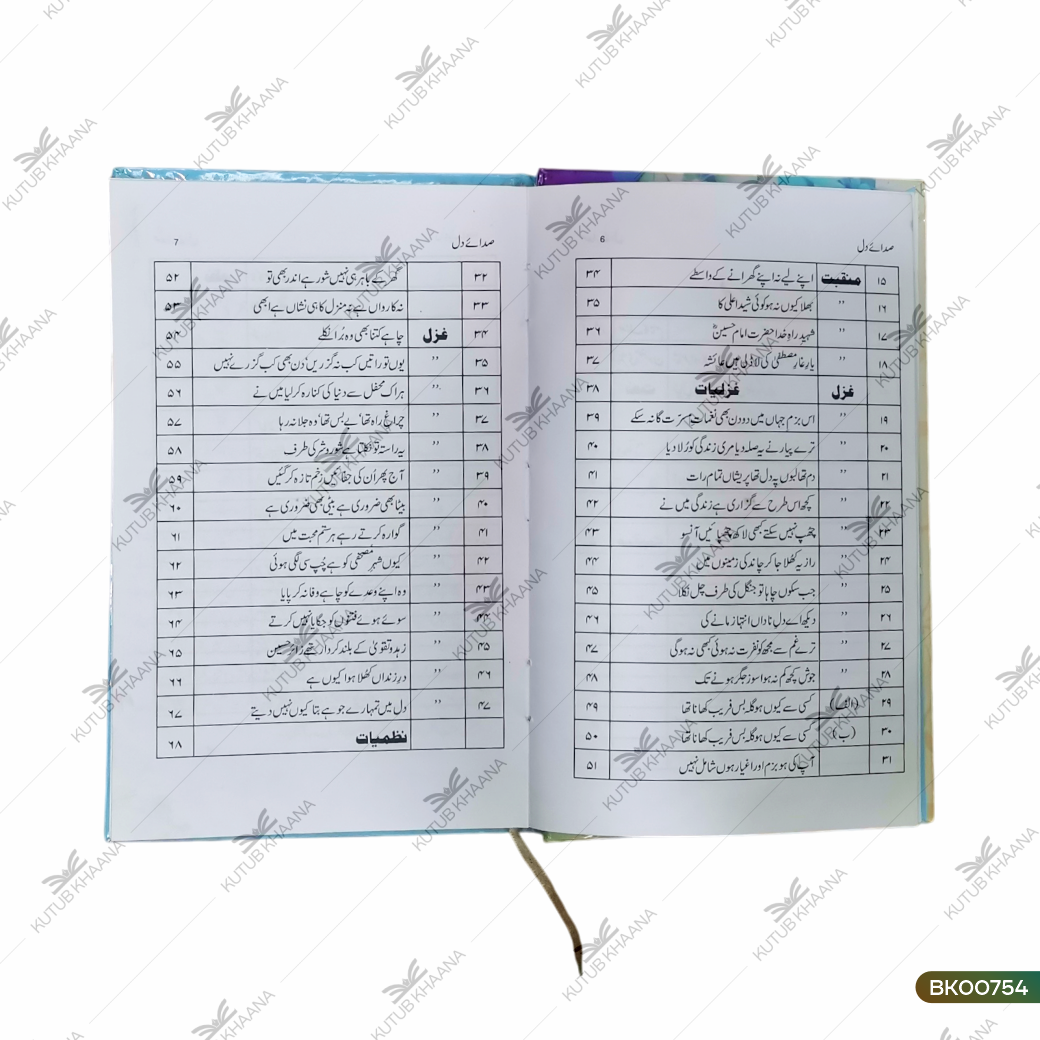 صدائے دل 6
۱۵ منقبت اپنے لیے نہ اپنے گھرانے کے واسطے ۳۴
۱۶ ,, بھلا کیوں نہ ہو کوئی شیدا علی کا ۳۵
۱۷ ,, شہیدِ راہِ خدا حضرت امام حسینؓ ۳۶
۱۸ ,, یارِ غارِ مصطفیٰ کی لاڈلی ہیں عائشہ ۳۷
غزل غزلیات ۳۸
۱۹ ,, اس بزم جہاں میں دو دن بھی نغمات مسرت گا نہ سکے ۳۹
۲۰ ,, ترے پیار نے یہ صلہ دیا مری زندگی کو رُلا دیا ۴۰
۲۱ ,, دم تھا لبوں پہ دل تھا پریشاں تمام رات ۴۱
۲۲ ,, کچھ اس طرح سے گزاری ہے زندگی میں نے ۴۲
۲۳ ,, چھپ نہیں سکتے کبھی لاکھ چھپائیں آنسو ۴۳
۲۴ ,, راز یہ کھلا جا کر چاند کی زمینوں میں ۴۴
۲۵ ,, جب سکوں چاہا تو جنگل کی طرف چل نکلا ۴۵
۲۶ ,, دیکھ اے دلِ ناداں انتہا زمانے کی ۴۶
۲۷ ,, ترے غم سے مجھ کو نفرت نہ ہوئی کبھی نہ ہوگی ۴۷
۲۸ ,, جوش کچھ کم نہ ہوا سوزِ جگر ہونے تک ۴۸
۲۹ (الف) کسی سے کیوں ہو گلہ بس فریب کھانا تھا ۴۹
۳۰ (ب) کسی سے کیوں ہو گلہ بس فریب کھانا تھا ۵۰
۳۱ آپ کی ہو بزم اور اغیار ہوں شامل نہیں ۵۱
صدائے دل 7
۳۲ گھر کے باہر ہی نہیں شور ہے اندر بھی تو ۵۲
۳۳ نہ کارواں ہے نہ منزل کا ہی نشاں ہے ابھی ۵۳
۳۴ غزل چاہے کتنا بھی وہ بُرا نکلے ۵۴
۳۵ ,, یوں تو راتیں کب نہ گزریں‘ دن بھی کب گزرے نہیں ۵۵
۳۶ ,, ہر اک محفل سے دنیا کی کنارہ کر لیا میں نے ۵۶
۳۷ ,, چراغِ راہ تھا‘ بے بس تھا‘ وہ جلا نہ رہا ۵۷
۳۸ ,, یہ راستہ تو نکلتا ہے شور و شر کی طرف ۵۸
۳۹ ,, آج پھر اُن کی جفائیں زخم تازہ کر گئیں ۵۹
۴۰ ,, بیٹا بھی ضروری ہے بیٹی بھی ضروری ہے ۶۰
۴۱ ,, گوارہ کرتے رہے ہر ستم محبت میں ۶۱
۴۲ ,, کیوں شہرِ مصحفی کو ہے چُپ سی لگی ہوئی ۶۲
۴۳ ,, وہ اپنے وعدے کو چاہے وفا نہ کر پایا ۶۳
۴۴ ,, سوئے ہوئے فتنوں کو جگایا نہیں کرتے ۶۴
۴۵ ,, زہد و تقویٰ کے بلند کردار تھے زائر حسین ۶۵
۴۶ ,, درِ زنداں کھلا ہوا کیوں ہے ۶۶
۴۷ ,, دل میں تمہارے جو ہے بتا کیوں نہیں دیتے ۶۷
نظمیات ۶۸
KUTUB KHAANA
BK00754